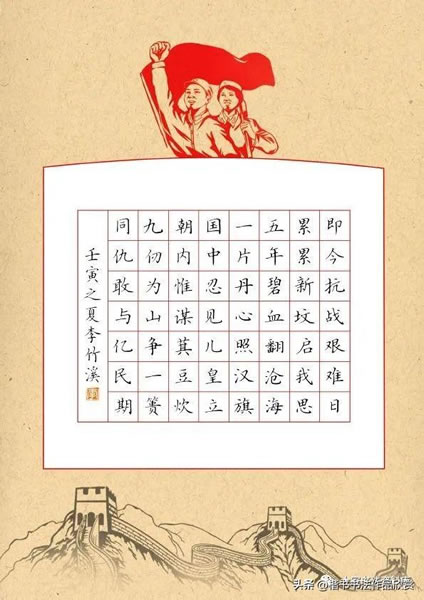 即今抗战艰难日
累累新坟启我思
五年碧血翻沧海
一片丹心照汉旗
国中忍见儿皇立
朝内惟谋萁豆炊
九仞为山争一篑
同仇敢与亿民期
壬寅之夏李竹溪
头条@楷书书法作品欣赏